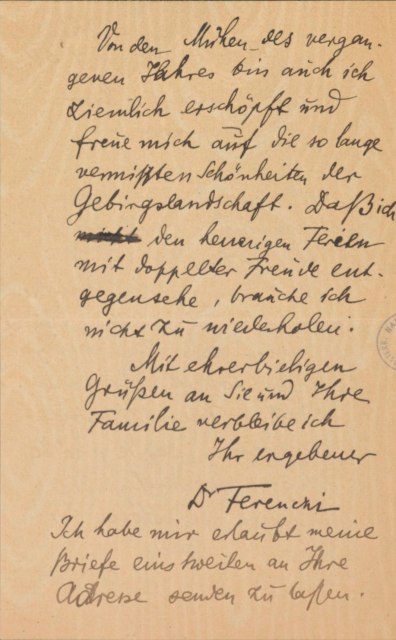 Von den Mühen des vergan-
genen Jahres bin auch ich
ziemlich erschöpft und
freue mich auf die so lange
vermißten Schönheiten der
Gebirgslandschaft. Daß ich
nicht den heurigen Ferien
mit doppelter Freude ent-
gegensehe, brauche ich
nicht zu wiederholen.
Mit ehrerbietigen
Grüßen an Sie und Ihre
Familie verbleibe ich
Ihr ergebener
Dr Ferenczi
Ich habe mir erlaubt meine
Briefe einstweilen an Ihre
Adresse senden zu laßen.